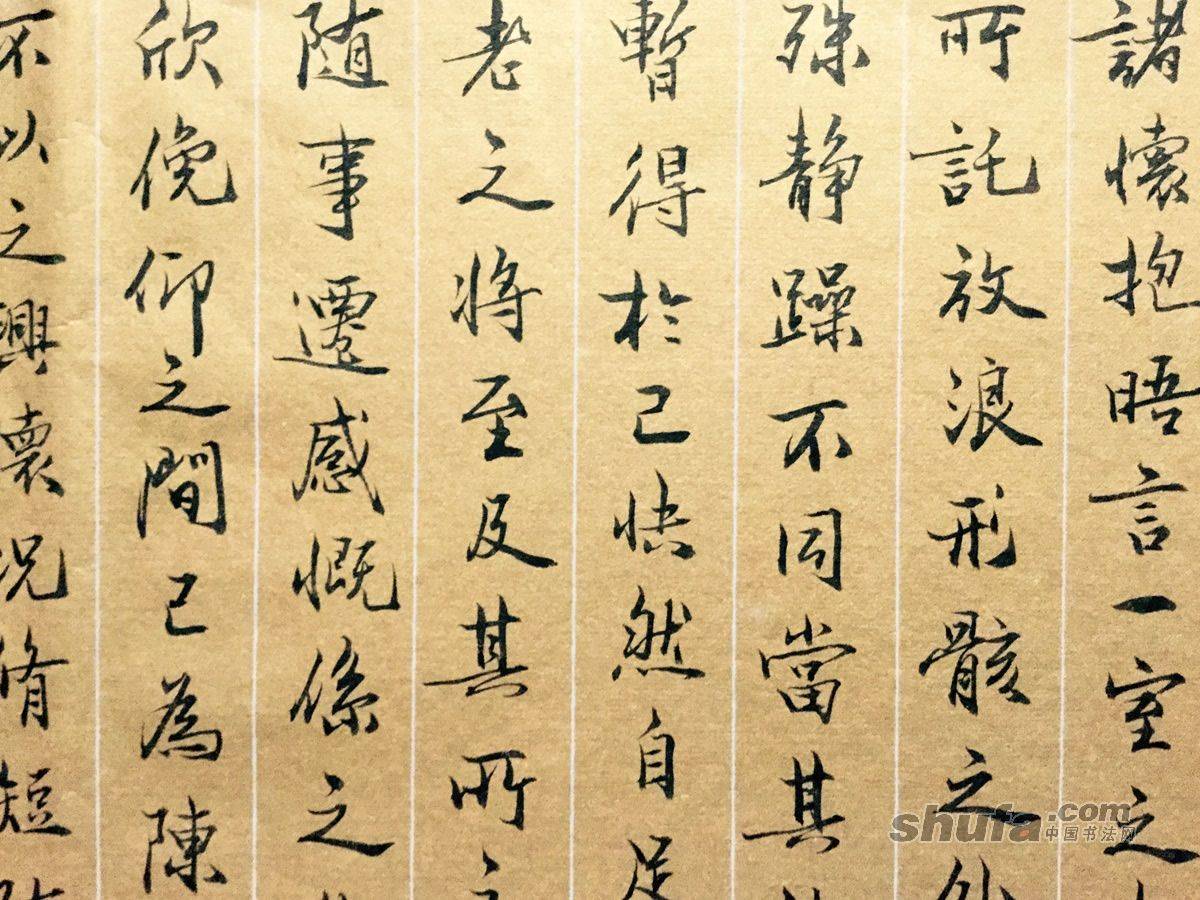 諸懷抱晤言一室之
所託放浪形骸之外
殊静躁不同當其
暫得於己快然自足
老之将至及其所之
随事遷感慨係之
欣俛仰之間已為陳
不以之興懷況脩短
shufa.com
中国书法网